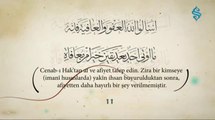 اسئلوا الله العفو والعافية فانه
ما اوتي احد بعد يقين خيرا من معافاة
Cenab-ı Hak'tan af ve afiyet talep edin. Zira bir kimseye
(imanî hususlarda) yakîn ihsan buyurulduktan sonra,
afiyetten daha hayırlı bir şey verilmemiştir.
11